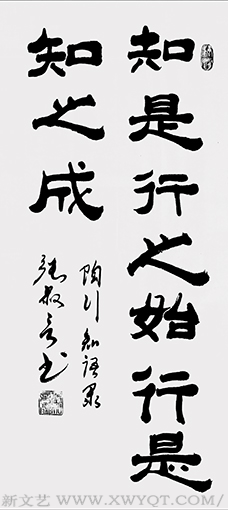 知是行之始行是
知之成
陶行知语录
张叔言书
新文艺/WWW.XWYQT.COM/